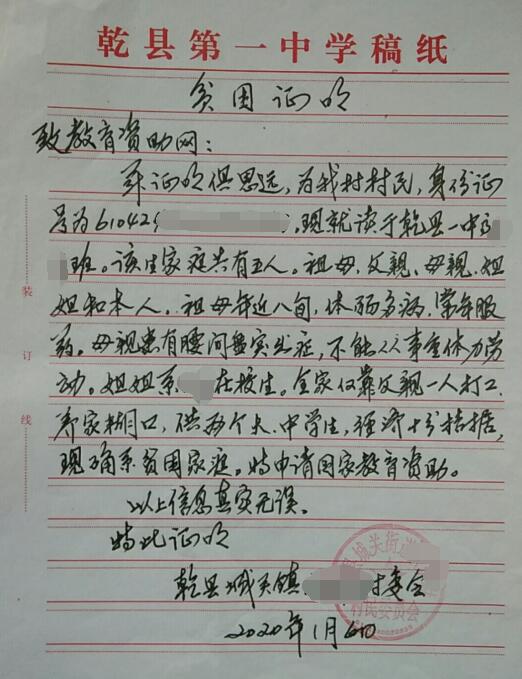 乾县第一中学稿纸
贫困证明
致教育资助网：
兹证明俱思远，为我村村民，身份证
号为61042，现就读于乾县一中
班。该生家庭共有五人。祖母、父亲、母亲、姐
姐和本人。祖母年近八旬，体弱多病，常年服
药。母亲患有腰间盘突出症，不能从事重体力劳
动。姐姐系在校生。全家仅靠父亲一人打工
养家糊口，供两个大、中学生，经济十分桔据，
现确系贫困家庭。特申请国家教育资助。
以上信息真实无误。
特此证明
乾县城关镇村委会
2020年1月6日
城关街道
村民委员会
装
订
线